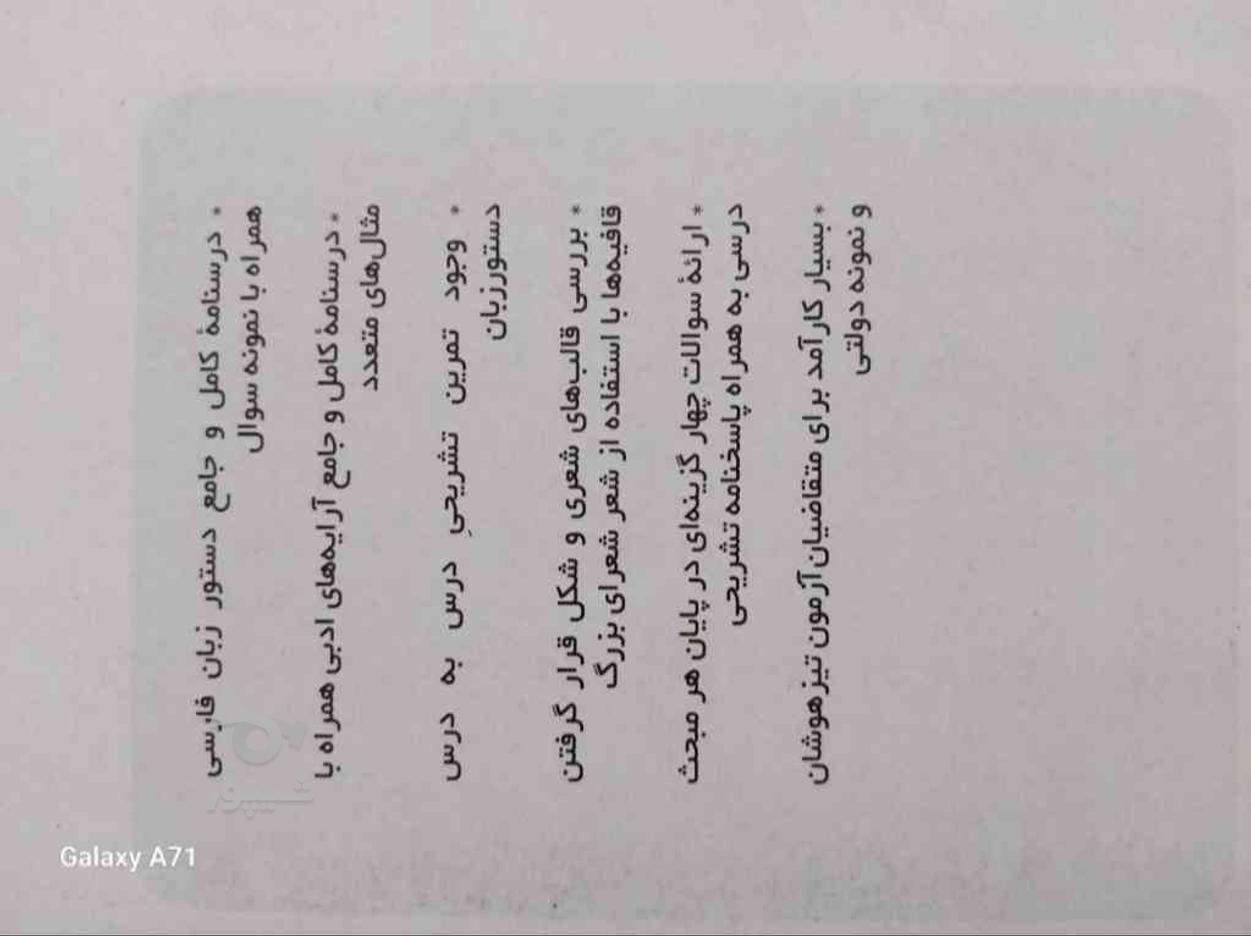 * درسنامهٔ کامل و جامع دستور زبان فارسی
همراه با نمونه سوال
* درسنامهٔ کامل و جامع آرایه‌های ادبی همراه با
مثال‌های متعدد
* وجود تمرین تشریحیِ درس به درس
دستورزبان
* بررسی قالب‌های شعری و شکل قرار گرفتن
قافیه‌ها با استفاده از شعر شعرای بزرگ
* ارائهٔ سوالات چهار گزینه‌ای در پایان هر مبحث
درسی به همراه پاسخنامه تشریحی
* بسیار کارآمد برای متقاضیان آزمون تیزهوشان
و نمونه دولتی
شیپور
Galaxy A71